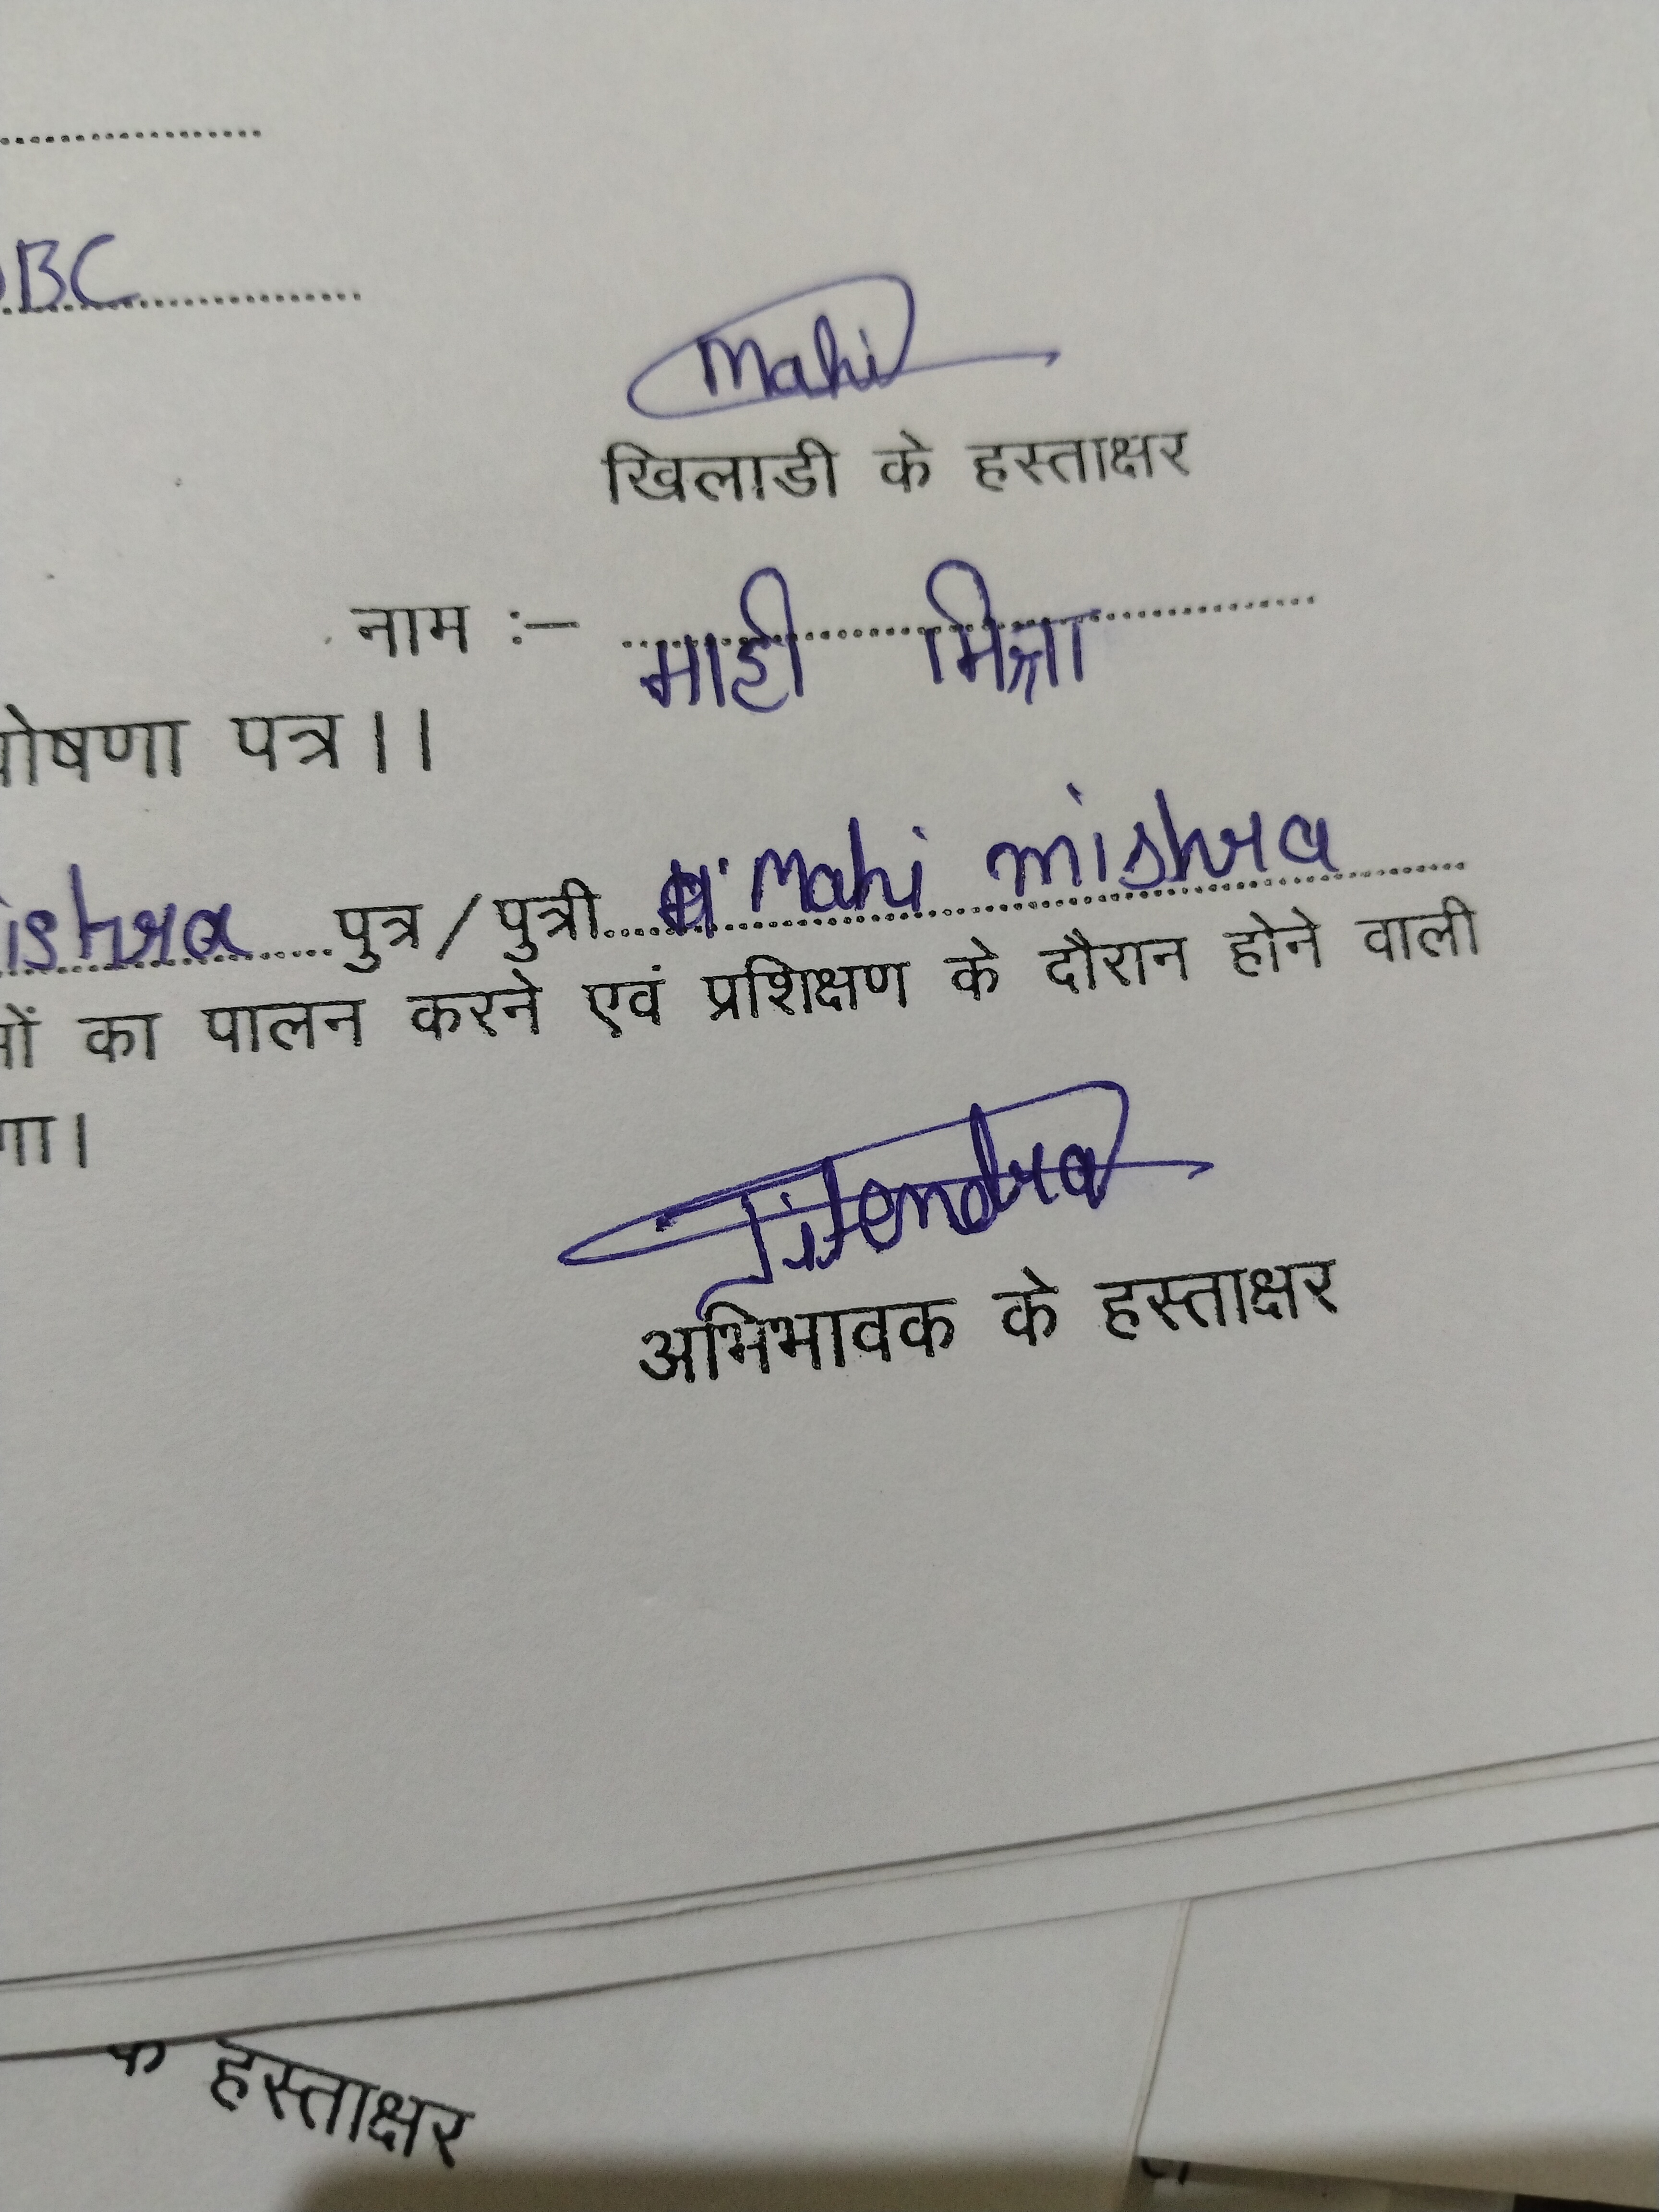 OBC
Mahi
खिलाडी के हस्ताक्षर
नाम :– माही मिश्रा
घोषणा पत्र।।
ishra पुत्र/पुत्री Mahi mishra
का पालन करने एवं प्रशिक्षण के दौरान होने वाली
गा।
Jitendra
अभिभावक के हस्ताक्षर
हस्ताक्षर